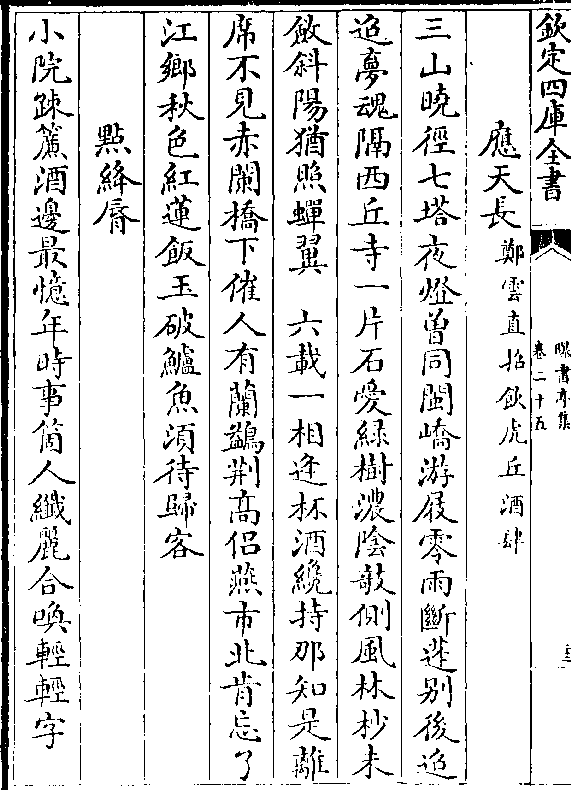 欽定四庫全書
曝書亭集
卷二十五
應天長 鄭雲直招飲虎丘酒肆
三山曉徑七塔夜燈曽同閩嶠游屐零雨斷蓬别後追
追夢魂隔西丘寺一片石愛緑樹濃陰敧側風林杪未
斂斜陽猶照蟬翼 六載一相逢杯酒纔持那知是離
席不見赤闌橋下催人有蘭鷁荆髙侣燕市北肯忘了
江鄉秋色紅蓮飯玉破鱸魚湏待歸客
點絳脣
小院疎簾酒邊最憶年時事箇人纖麗合喚輕輕字